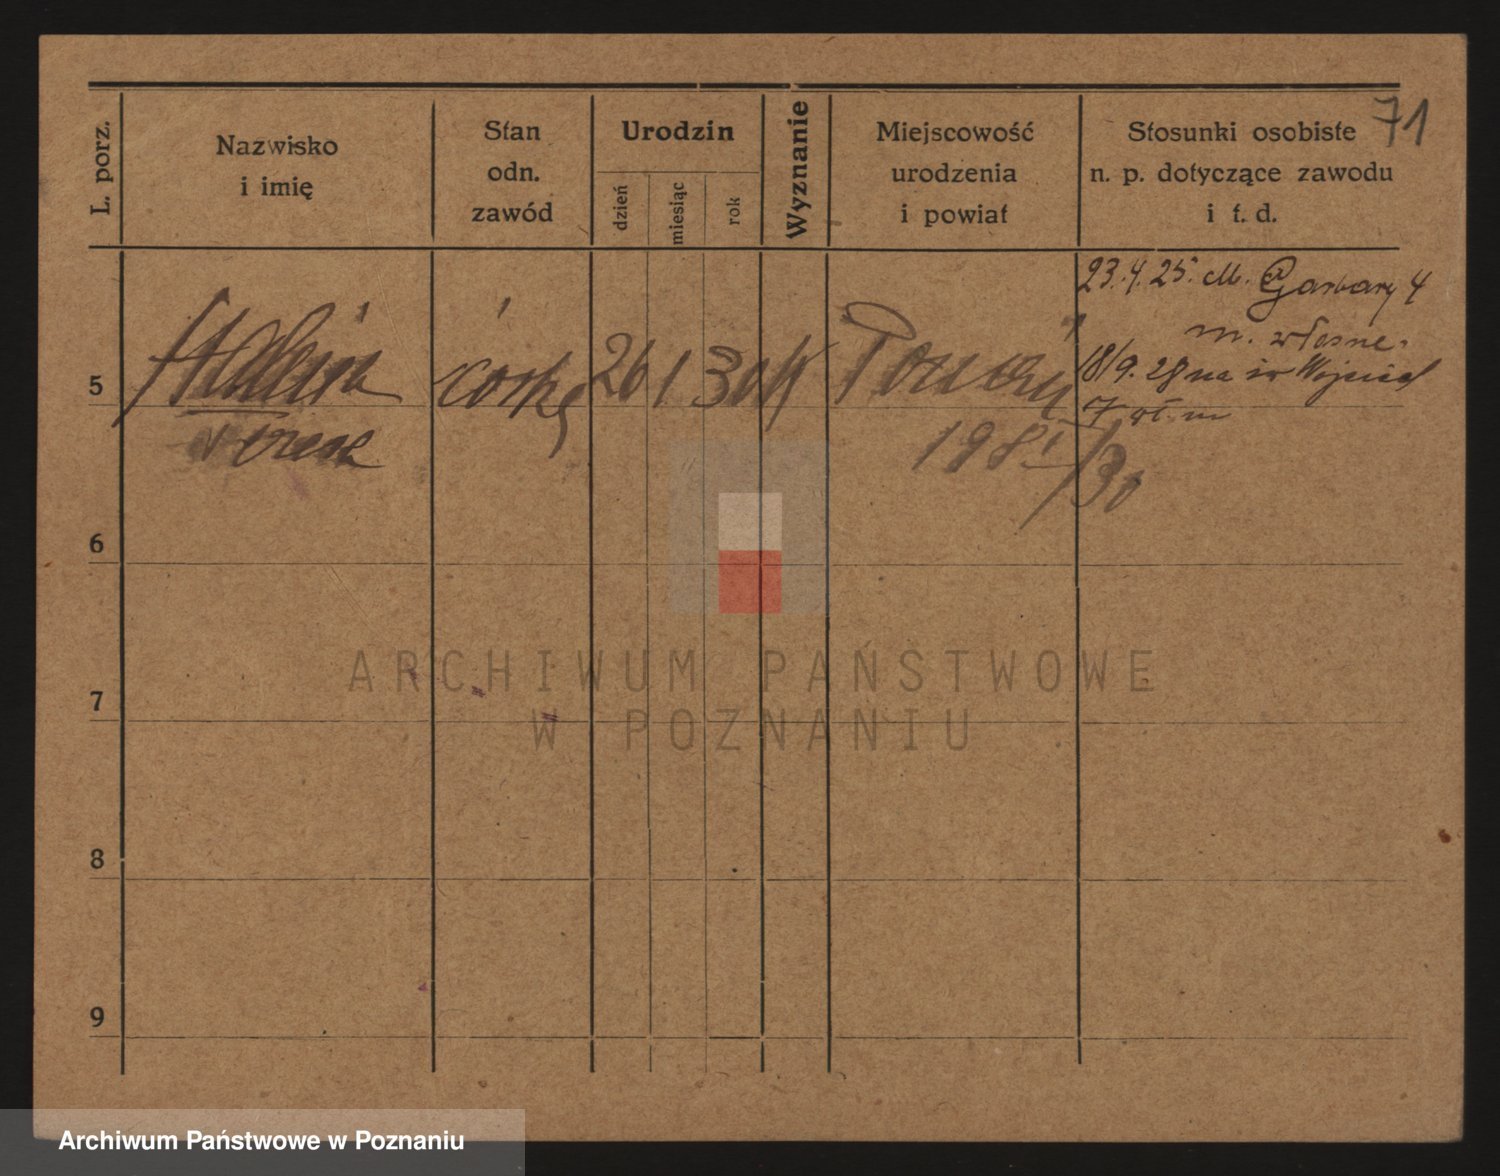 71
L. porz.
Nazwisko
i imię
Stan
odn.
zawód
Urodzin
dzień
miesiąc
rok
Wyznanie
Miejscowość
urodzenia
i powiat
Stosunki osobiste
n. p. dotyczące zawodu
i t. d.
23.4.25. M. Garbary 4
m. własne.
18/9.28 na św Wojciech
7 wł. m
5
córka
26
1
30
K
Poznań
1981/30
6
7
8
9
ARCHIWUM PAŃSTWOWE
W POZNANIU
Archiwum Państwowe w Poznaniu